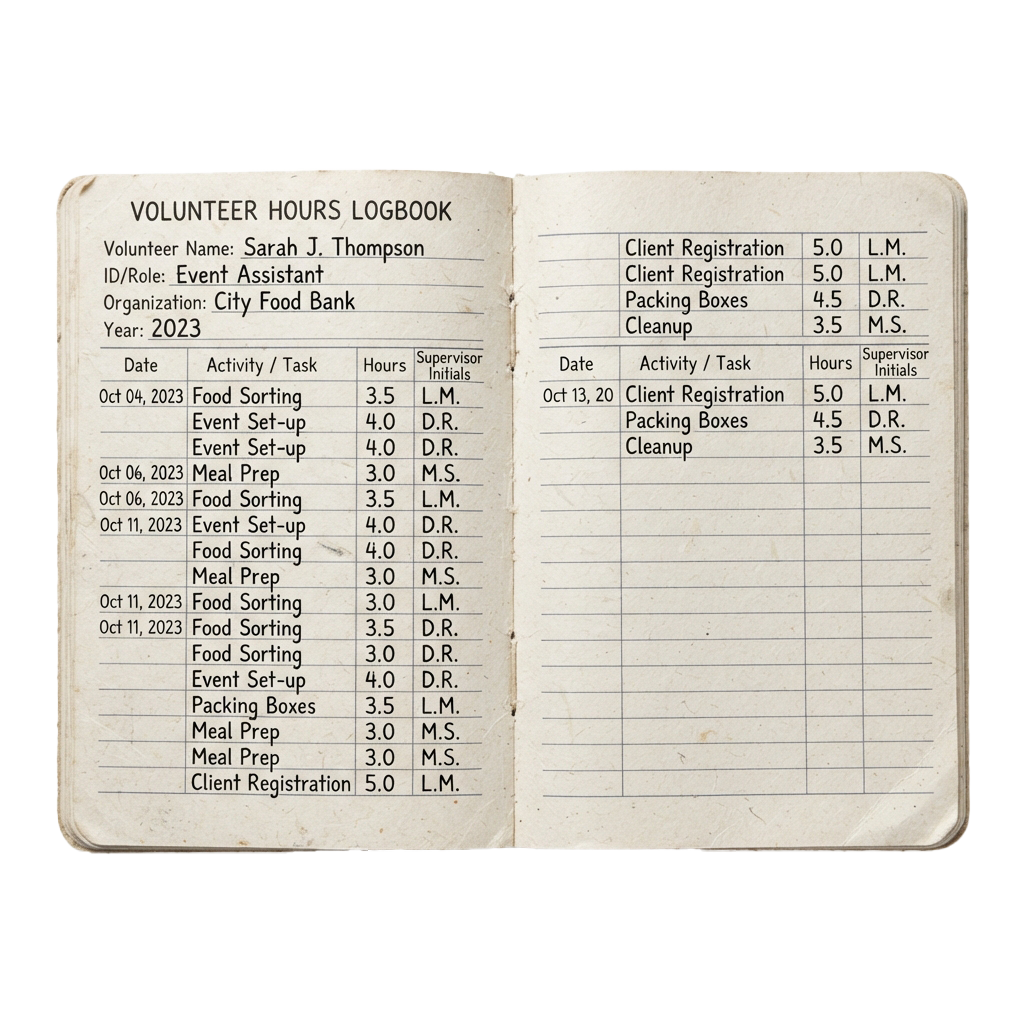 VOLUNTEER HOURS LOGBOOK
Volunteer Name: Sarah J. Thompson
ID/Role: Event Assistant
Organization: City Food Bank
Year: 2023
Date Activity / Task Hours Supervisor Initials
Oct 04, 2023 Food Sorting 3.5 L.M.
Event Set-up 4.0 D.R.
Event Set-up 4.0 D.R.
Oct 06, 2023 Meal Prep 3.0 M.S.
Oct 06, 2023 Food Sorting 3.5 L.M.
Oct 11, 2023 Event Set-up 4.0 D.R.
Food Sorting 4.0 D.R.
Meal Prep 3.0 M.S.
Oct 11, 2023 Food Sorting 3.0 L.M.
Oct 11, 2023 Food Sorting 3.5 D.R.
Food Sorting 3.0 D.R.
Event Set-up 4.0 D.R.
Packing Boxes 3.5 L.M.
Meal Prep 3.0 M.S.
Meal Prep 3.0 M.S.
Client Registration 5.0 L.M.
Client Registration 5.0 L.M.
Client Registration 5.0 L.M.
Packing Boxes 4.5 D.R.
Cleanup 3.5 M.S.
Date Activity / Task Hours Supervisor Initials
Oct 13, 20 Client Registration 5.0 L.M.
Packing Boxes 4.5 D.R.
Cleanup 3.5 M.S.